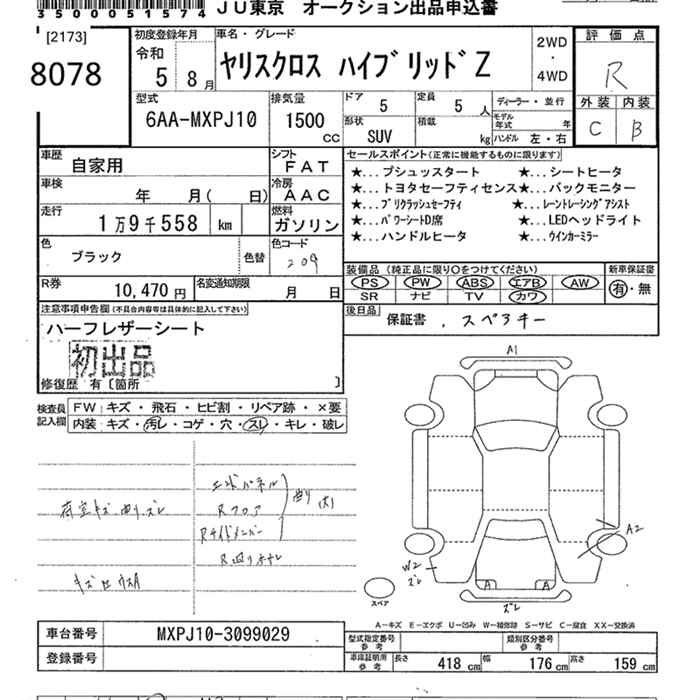 3500051574 JU東京 オークション出品申込書
[2173]
8078
初度登録年月 令和 5年 8月
車名・グレード ヤリスクロス ハイブリッド Z
2WD・4WD
評価点 R
外装 内装
C B
型式 6AA-MXPJ10
排気量 1500 CC
ドア 5
定員 5人
ディーラー・並行
形状 SUV
積載 kg
モデル年式 年
ハンドル 左・右
車歴 自家用
シフト FAT
車検 年 月(日)
冷房 AAC
走行 1万9千558 km
燃料 ガソリン
色 ブラック
色替
色コード 209
R券 10,470円
名変通知期限 月 日
セールスポイント(正常に機能するものに限ります)
★...プシュッスタート ★...シートヒータ
★...トヨタセーフティセンス★...バックモニター
★...プリクラッシュセーフティ ★...レーントレーシングアシスト
★...パワーシートD席 ★...LEDヘッドライト
★...ハンドルヒータ ★...ウインカーミラー
装備品(純正品に限り○をつけてください)
新車保証書
PS PW ABS エアB AW
有・無
SR ナビ TV カワ
後日品 保証書 . スペアキー
注意事項申告欄(不具合内容等は具体的に記入して下さい)
ハーフレザーシート
初出品
修復歴 有〔箇所 〕
検査員記入欄
FW キズ・飛石・ヒビ割・リペア跡・×要
内装 キズ・汚レ・コゲ・穴・スレ・キレ・破レ
エンドパネル
Rフロア
曲り
荷室キズ 曲り ズレ
Rサイドメンバー
A1
A2
W2
ズレ
A A
ズレ
スペア
A-キズ E-エクボ U-凹み W-補修跡 S-サビ C-腐食 XX-交換済
車台番号 MXPJ10-3099029
登録番号
型式指定番号 参考
類別区分番号 参考
車庫証明用 参考
長さ 418 cm
幅 176 cm
高さ 159 cm